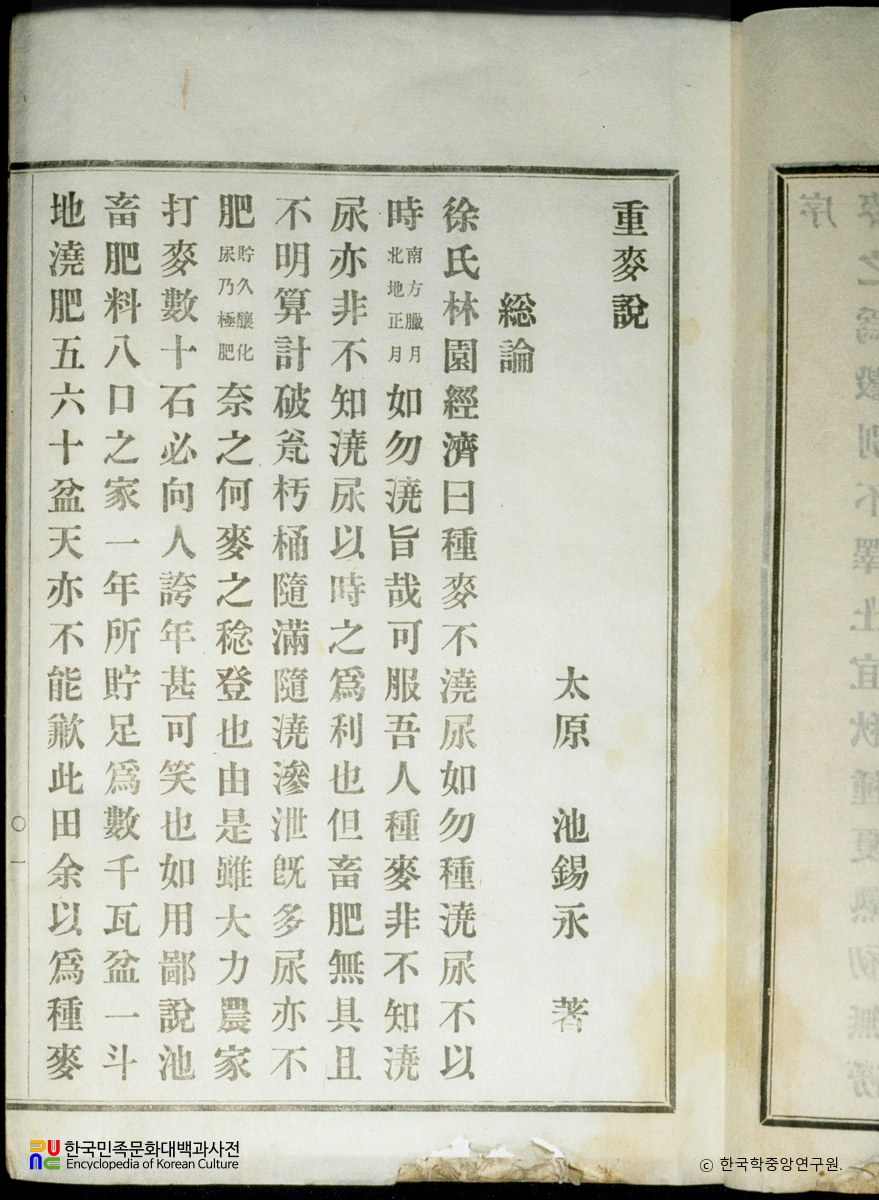 重麥說
太原 池錫永 著
総論
徐氏林園經濟曰種麥不澆尿如勿種澆尿不以
時南方臘月北地正月如勿澆旨哉可服吾人種麥非不知澆
尿亦非不知澆尿以時之爲利也但畜肥無具且
不明算計破瓮朽桶隨滿隨澆滲泄旣多尿亦不
肥貯久釀化尿乃極肥奈之何麥之稔登也由是雖大力農家
打麥數十石必向人誇年甚可笑也如用鄙說池
畜肥料八口之家一年所貯足爲數千瓦盆一斗
地澆肥五六十盆天亦不能歉此田余以爲種麥
〇一
한국민족문화대백과사전
Encyclopedia of Korean Culture
© 한국학중앙연구원.